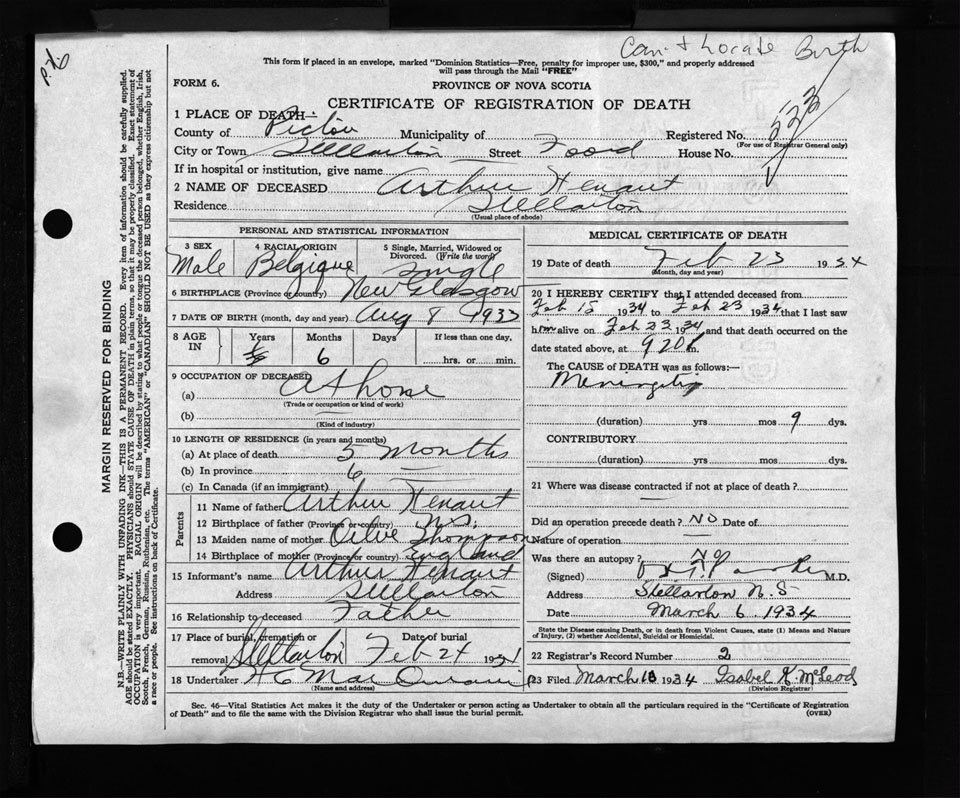 Can't Locate Birth
This form if placed in an envelope, marked "Dominion Statistics—Free, penalty for improper use, $300," and properly addressed
will pass through the Mail "FREE"
FORM 6.
PROVINCE OF NOVA SCOTIA
CERTIFICATE OF REGISTRATION OF DEATH
1 PLACE OF DEATH—
County of Pictou Municipality of Registered No. 533
(For use of Registrar General only)
City or Town Stellarton Street Foord House No.
If in hospital or institution, give name
2 NAME OF DECEASED Arthur Henaut
Residence Stellarton
(Usual place of abode)
PERSONAL AND STATISTICAL INFORMATION
3 SEX Male
4 RACIAL ORIGIN Belgique
5 Single, Married, Widowed or Divorced. (Write the word) Single
6 BIRTHPLACE (Province or country) New Glasgow
7 DATE OF BIRTH (month, day and year) Aug 8 1933
8 AGE IN
Years Months Days If less than one day,
6 hrs. or min.
9 OCCUPATION OF DECEASED
(a) At home
(Trade or occupation or kind of work)
(b)
(Kind of industry)
10 LENGTH OF RESIDENCE (in years and months)
(a) At place of death 5 months
(b) In province 6
(c) In Canada (if an immigrant)
Parents
11 Name of father Arthur Henaut
12 Birthplace of father (Province or country) N.S.
13 Maiden name of mother Olive Thompson
14 Birthplace of mother (Province or country) England
15 Informant's name Arthur Henaut
Address Stellarton
16 Relationship to deceased Father
17 Place of burial, cremation or removal Stellarton Date of burial Feb 24 1934
18 Undertaker H C Mac
(Name and address)
MEDICAL CERTIFICATE OF DEATH
19 Date of death Feb 23 1934
(Month, day and year)
20 I HEREBY CERTIFY that I attended deceased from
Feb 15 1934 to Feb 23 1934 that I last saw
him alive on Feb 23 1934 and that death occurred on the
date stated above, at 920 P m.
The CAUSE OF DEATH was as follows:—
Meningitis
(duration) yrs mos 9 dys.
CONTRIBUTORY
(duration) yrs. mos dys.
21 Where was disease contracted if not at place of death?
Did an operation precede death? No Date of
Nature of operation
Was there an autopsy? No
(Signed) M.D.
Address Stellarton N.S
Date March 6 1934
State the Disease causing Death, or in death from Violent Causes, state (1) Means and Nature
of Injury, (2) whether Accidental, Suicidal or Homicidal.
22 Registrar's Record Number 2
23 Filed March 10 1934 Isobel K. McLeod
(Division Registrar)
Sec. 46—Vital Statistics Act makes it the duty of the Undertaker or person acting as Undertaker to obtain all the particulars required in the "Certificate of Registration
of Death" and to file the same with the Division Registrar who shall issue the burial permit. (OVER)
MARGIN RESERVED FOR BINDING
N.B.—WRITE PLAINLY WITH UNFADING INK—THIS IS A PERMANENT RECORD. Every item of information should be carefully supplied.
AGE should be stated EXACTLY. PHYSICIANS should STATE CAUSE OF DEATH in plain terms, so that it may be properly classified. Exact statement of
OCCUPATION is very important. RACIAL ORIGIN will be described by stating to what people or tongue the deceased person belonged, whether English, Irish,
Scotch, French, German, Russian, Ruthenian, etc. The terms "AMERICAN" or "CANADIAN" SHOULD NOT BE USED as they express citizenship but not
a race or people. See instructions on back of Certificate.